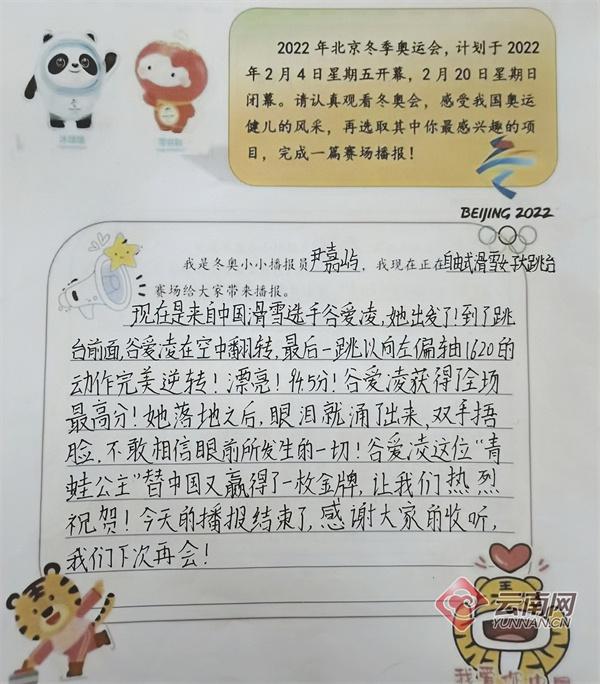 2022年北京冬季奥运会，计划于2022
年2月4日星期五开幕，2月20日星期日
闭幕。请认真观看冬奥会，感受我国奥运
健儿的风采，再选取其中你最感兴趣的项
目，完成一篇赛场播报！
冰墩墩
雪容融
BEIJING 2022
我是冬奥小小播报员尹嘉屿，我现在正在自由式滑雪女子大跳台
赛场给大家带来播报。
现在是来自中国滑雪选手谷爱凌，她出发了！到了跳
台前面，谷爱凌在空中翻转，最后一跳以向左偏轴1620的
动作完美逆转！漂亮！94.5分！谷爱凌获得了全场
最高分！她落地之后，眼泪就涌了出来，双手捂
脸，不敢相信眼前所发生的一切！谷爱凌这位“青
蛙公主”替中国又赢得了一枚金牌，让我们热烈
祝贺！今天的播报结束了，感谢大家的收听，
我们下次再会！
云南网
YUNNAN.CN
我爱你中国